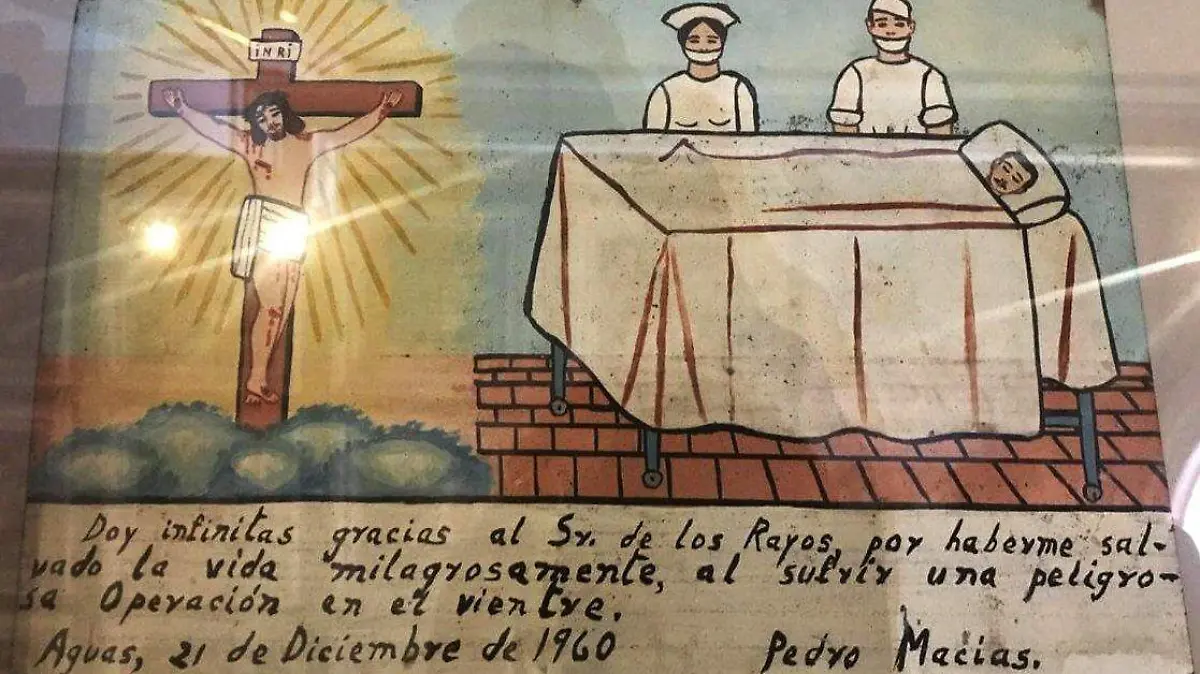 INRI
Doy infinitas gracias al Sr. de los Rayos, por haberme sal-
vado la vida milagrosamente, al sufrir una peligro-
sa Operación en el vientre.
Aguas, 21 de Diciembre de 1960 Pedro Macias.